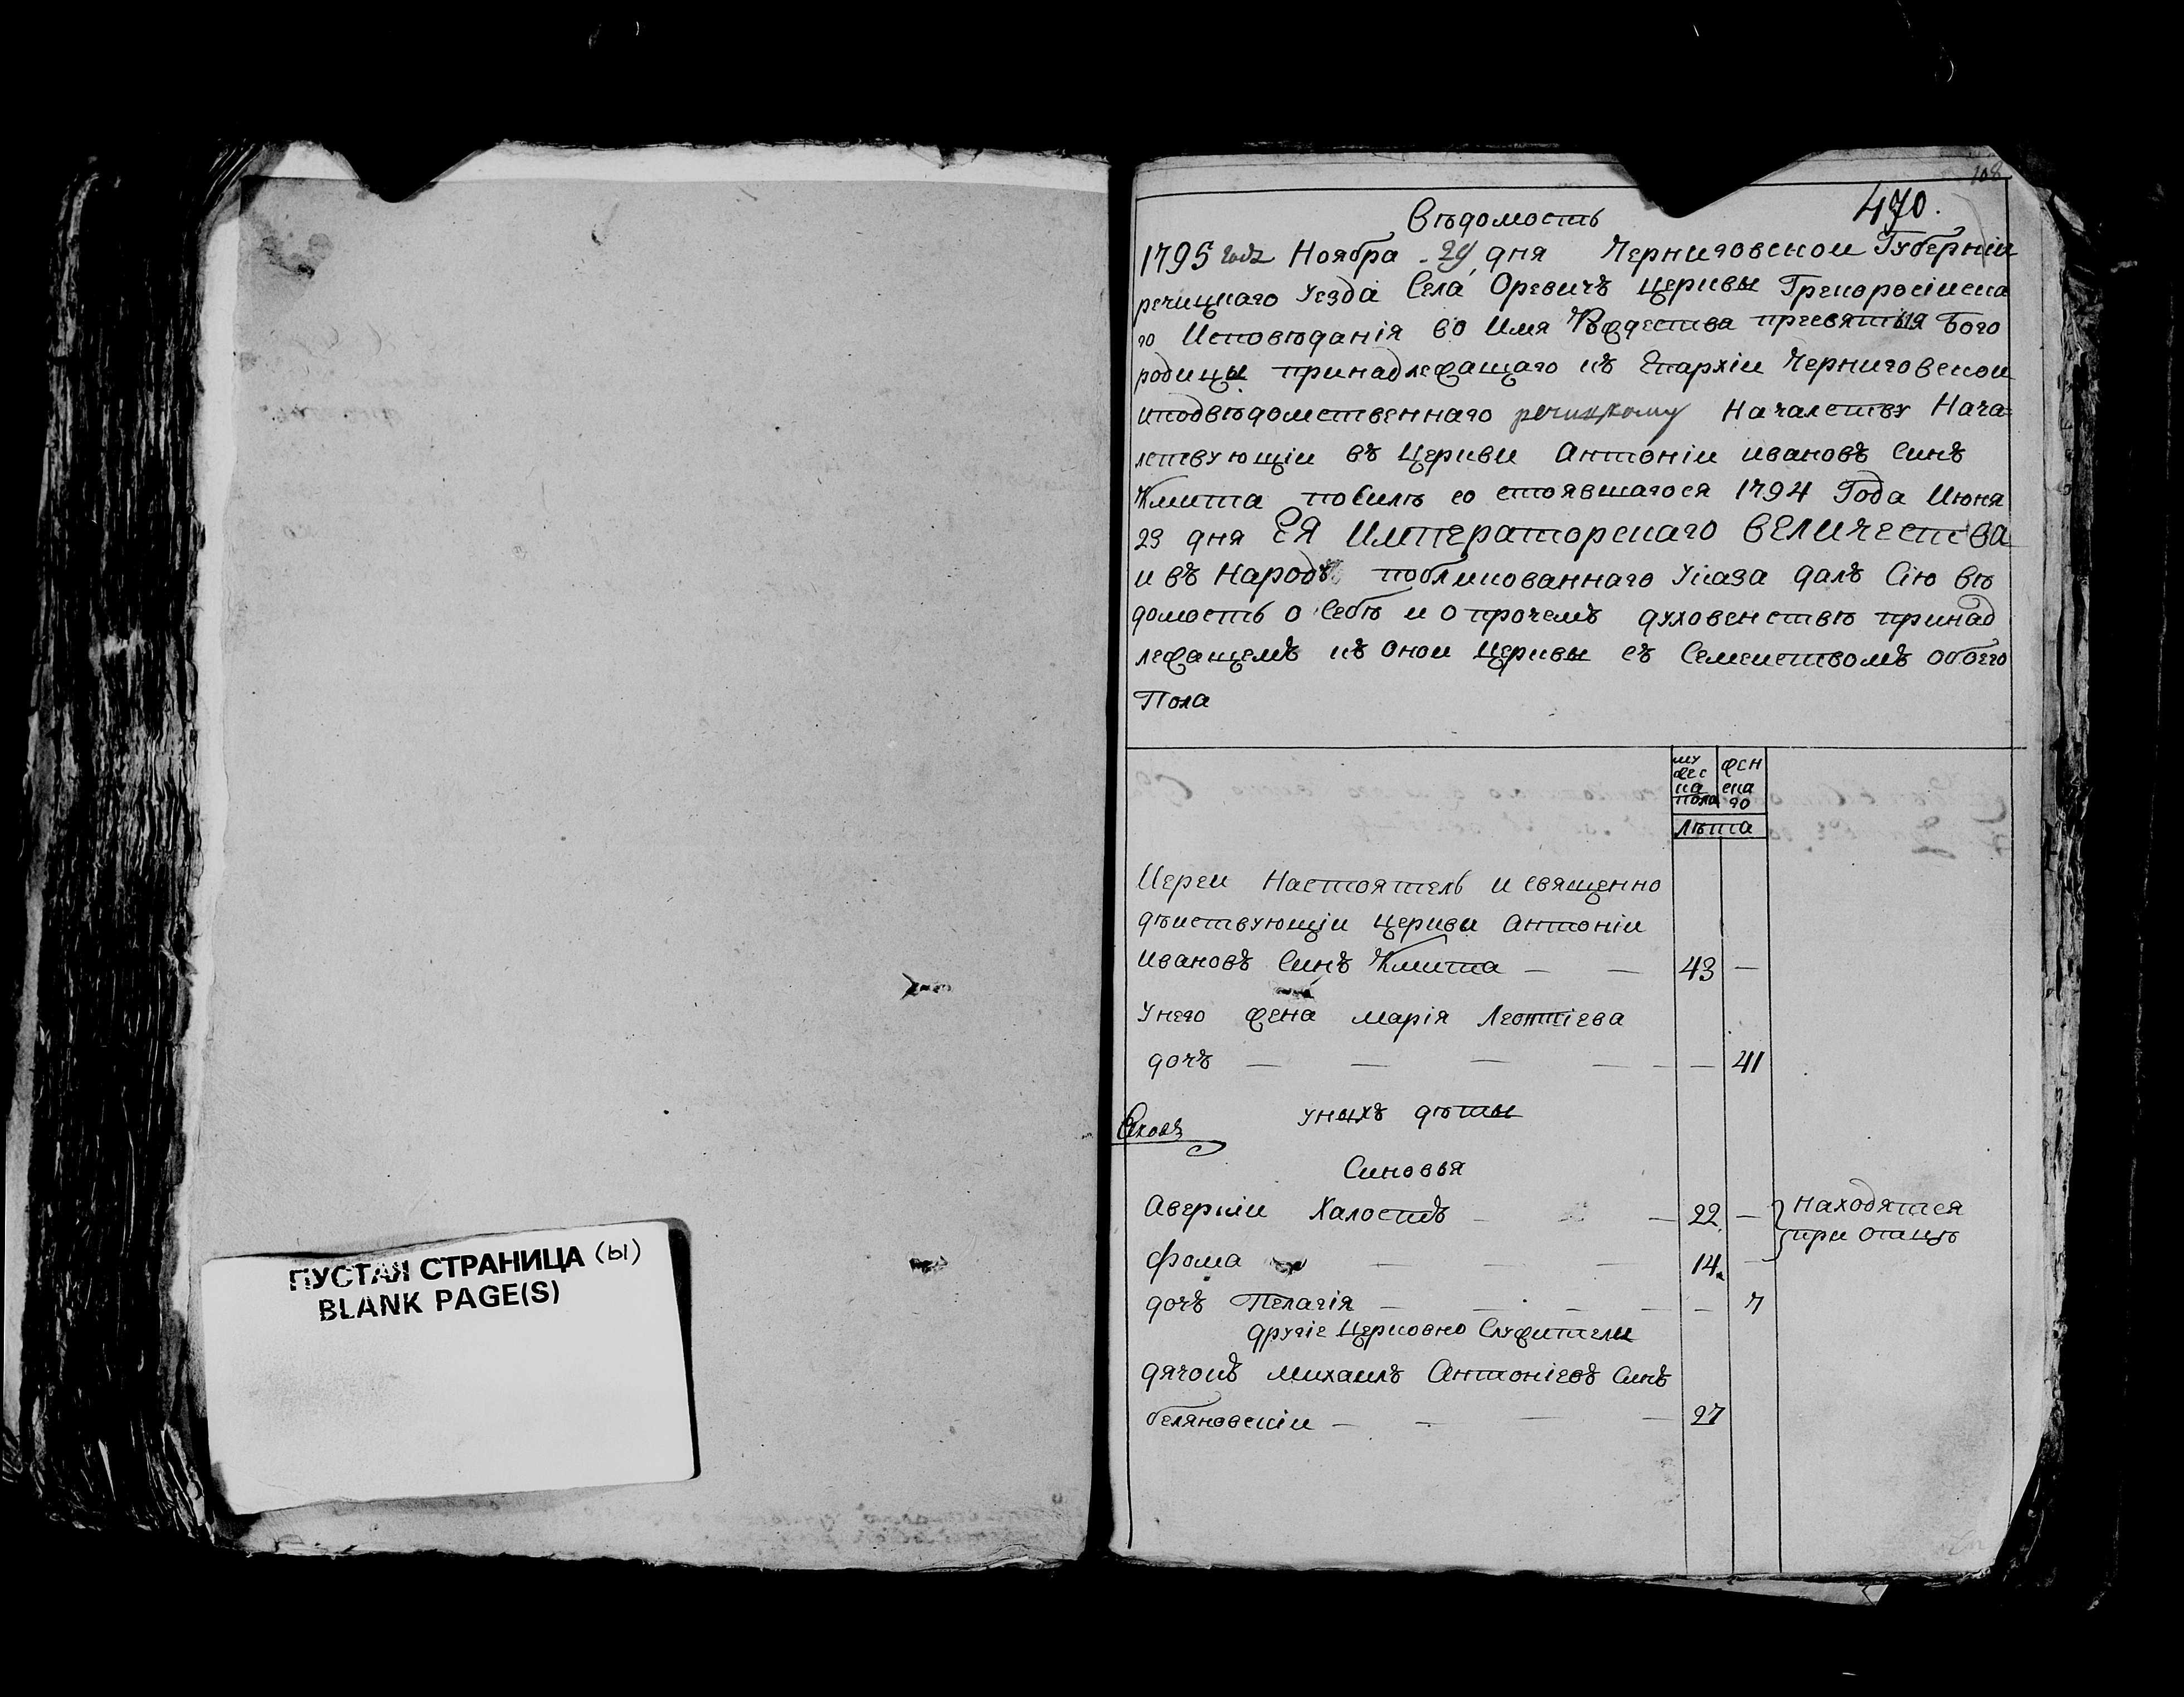 ПУСТАЯ СТРАНИЦА (ы)
BLANK PAGE(S)
108
470.
Вѣдомость
1795 годѣ Ноября 29 дня Черниговскои Губерніи
речицкаго Уезда Села Оревичъ Церквы Грекоросійска
го Исповѣданія во Имя Рождества пресвятыя Бого
родицы принадлежащаго къ Епархіи Черниговскои
иподвѣдомственнаго речицкому Началству Нача
лствующіи въ Церкви Антоніи ивановъ Синъ
Кмита по Силѣ со стоявшагося 1794 Года Июня
23 дня Ея Императорскаго Величества
и въ Народъ публикованнаго Указа далъ Сію вѣ
домость о Себѣ и о прочемъ духовенствѣ принад
лежащемъ къ Онои Церквы съ Семеиствомъ обоего
Пола
му жес ка пола
жен ска го
Лѣта
Иереи Настоятель и священно
дѣиствующіи Церкви Антоніи
ивановъ Синъ Кмита — — 43 —
Унего жена Марія Леонтіева
дочъ — — — — — — 41
Уныхъ дѣты
Синовья
Аверкіи Халостъ — — 22 — находятся
при отцѣ
Фома — — — 14 —
дочъ Пелагія — — — — — 7
другіе Церковно Служители
дячокъ Михаилъ Антоніевъ Синъ
беляновскіи — — — — 27